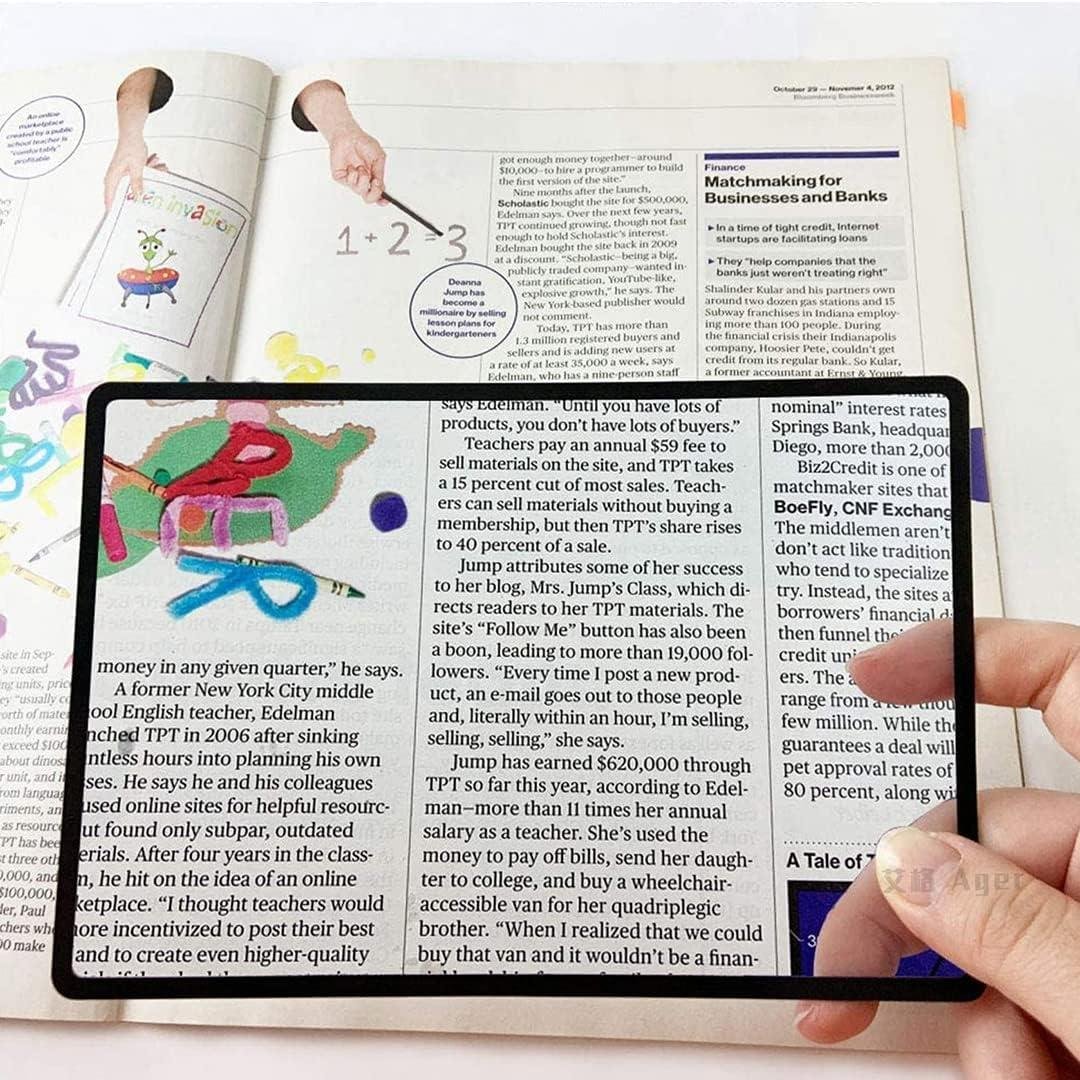 October 29 — Novemer 4, 2012
Bloomberg Businessweek
An online
marketplace
created by a public
school teacher is
"comfortably"
profitable
alien invasion
1+2=3
Deanna
Jump has
become a
millionaire by selling
lesson plans for
kindergarteners
got enough money together—around
$10,000—to hire a programmer to build
the first version of the site."
Nine months after the launch,
Scholastic bought the site for $500,000,
Edelman says. Over the next few years,
TPT continued growing, though not fast
enough to hold Scholastic's interest.
Edelman bought the site back in 2009
at a discount. "Scholastic—being a big,
publicly traded company—wanted in-
stant gratification, YouTube-like,
explosive growth," he says. The
New York-based publisher would
not comment.
Today, TPT has more than
1.3 million registered buyers and
sellers and is adding new users at
a rate of at least 35,000 a week, says
Edelman, who has a nine-person staff
Finance
Matchmaking for
Businesses and Banks
▸ In a time of tight credit, Internet
startups are facilitating loans
▸ They "help companies that the
banks just weren't treating right"
Shalinder Kular and his partners own
around two dozen gas stations and 15
Subway franchises in Indiana employ-
ing more than 100 people. During
the financial crisis their Indianapolis
company, Hoosier Pete, couldn't get
credit from its regular bank. So Kular,
a former accountant at Ernst & Young,
site in Sep-
's created
ng units, pric
ey "usually c
orth of mater
onthly earni
exceed $100
about dinos
r unit, and i
rom languag
riments, an
as resource
TPT has bee
t three oth
,000, and
$100,000,
ler, Paul
chers wh
00 make
money in any given quarter," he says.
A former New York City middle
ool English teacher, Edelman
nched TPT in 2006 after sinking
ntless hours into planning his own
ses. He says he and his colleagues
used online sites for helpful resourc-
ut found only subpar, outdated
erials. After four years in the class-
m, he hit on the idea of an online
ketplace. "I thought teachers would
ore incentivized to post their best
and to create even higher-quality
says Edelman. "Until you have lots of
products, you don't have lots of buyers."
Teachers pay an annual $59 fee to
sell materials on the site, and TPT takes
a 15 percent cut of most sales. Teach-
ers can sell materials without buying a
membership, but then TPT's share rises
to 40 percent of a sale.
Jump attributes some of her success
to her blog, Mrs. Jump's Class, which di-
rects readers to her TPT materials. The
site's "Follow Me" button has also been
a boon, leading to more than 19,000 fol-
lowers. "Every time I post a new prod-
uct, an e-mail goes out to those people
and, literally within an hour, I'm selling,
selling, selling," she says.
Jump has earned $620,000 through
TPT so far this year, according to Edel-
man—more than 11 times her annual
salary as a teacher. She's used the
money to pay off bills, send her daugh-
ter to college, and buy a wheelchair-
accessible van for her quadriplegic
brother. "When I realized that we could
buy that van and it wouldn't be a finan-
nominal" interest rates
Springs Bank, headquar
Diego, more than 2,000
Biz2Credit is one of
matchmaker sites that
BoeFly, CNF Exchang
The middlemen aren't
don't act like tradition
who tend to specialize
try. Instead, the sites a
borrowers' financial d
then funnel the
credit uni
ers. The a
range from a few thou
few million. While the
guarantees a deal will
pet approval rates of
80 percent, along wi
A Tale of T
3
艾格 Ager